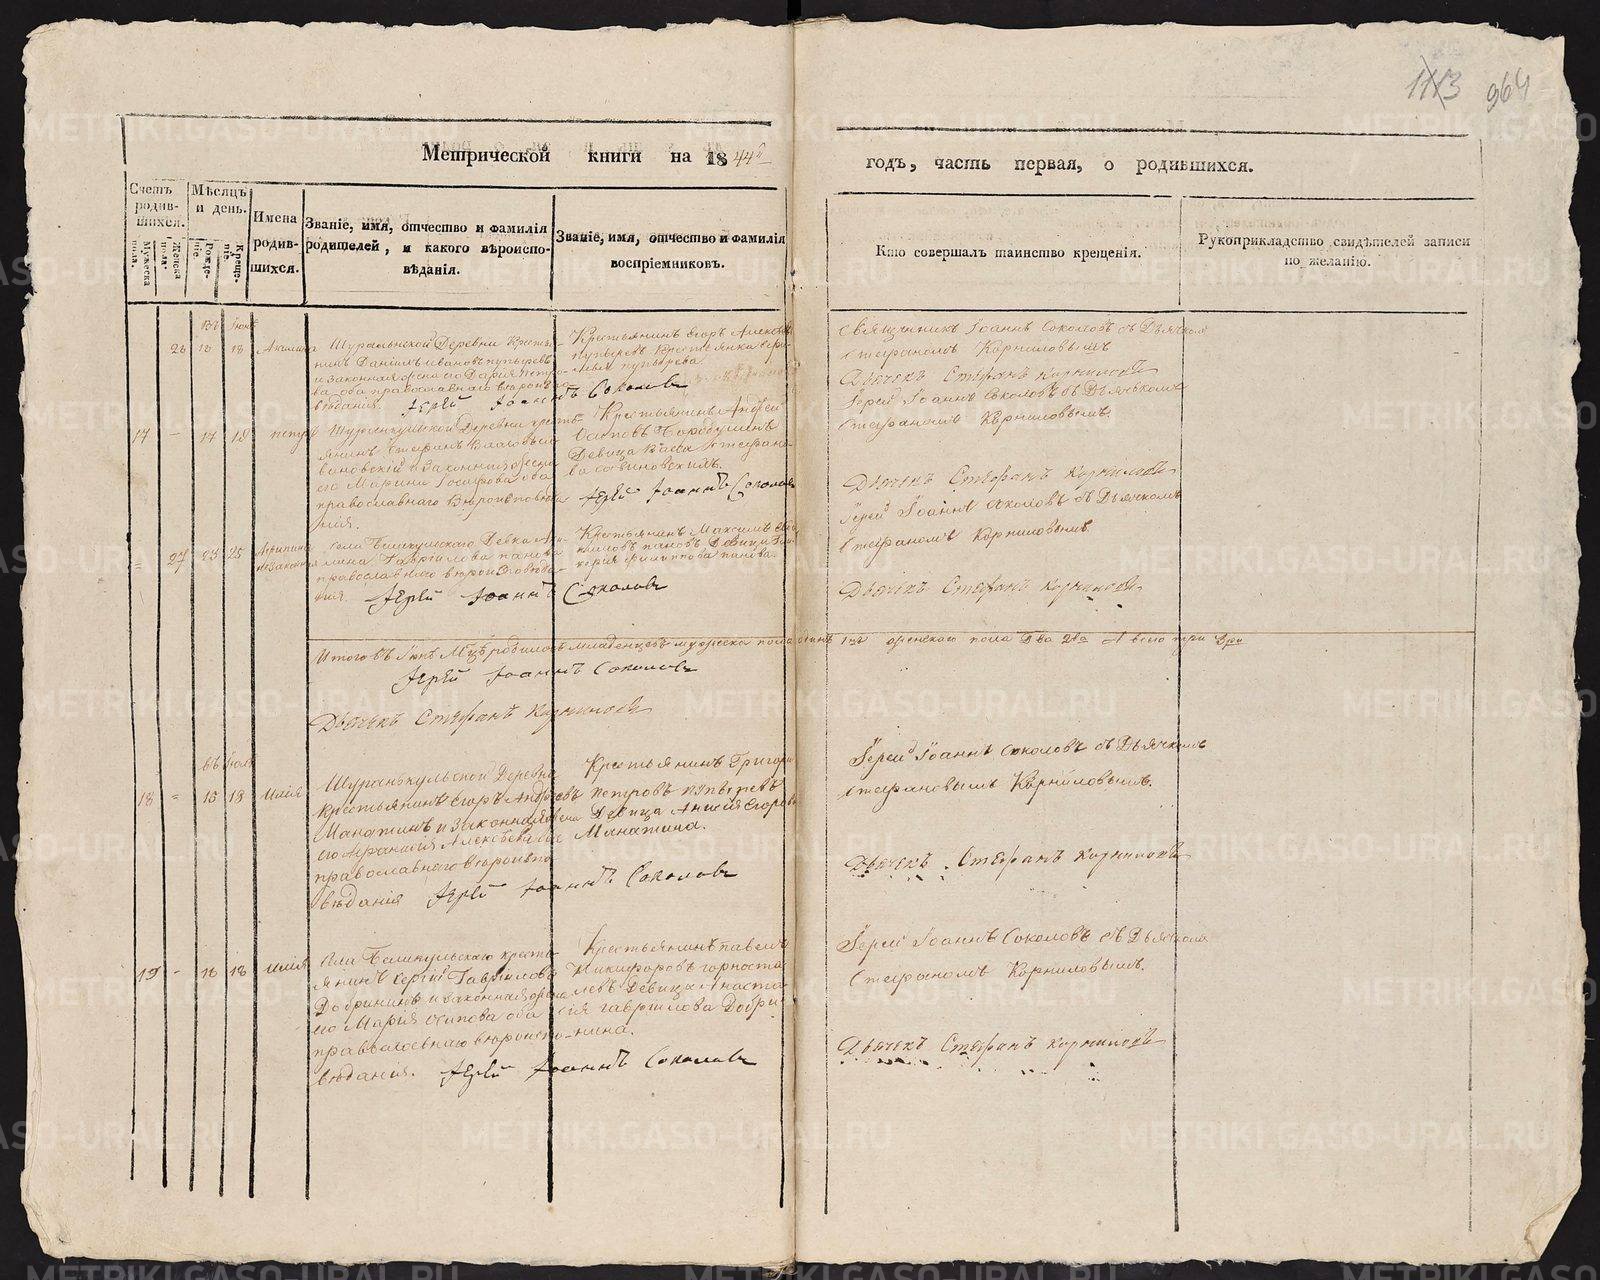 1113 964
Метрической книги на 1844й годъ, часть первая, о родившихся.
Счетъ родившихся.
Мужеска пола.
Женска пола.
Мѣсяцъ и день.
Рожденіе.
Крещеніе.
Имена родившихся.
Званіе, имя, отчество и фамилія родителей, и какого вѣроисповѣданія.
Званіе, имя, отчество и фамилія воспріемниковъ.
Кто совершалъ таинство крещенія.
Рукоприкладство свидѣтелей записи по желанію.
Въ Іюнѣ
26 18
Деревни Крестья-
нинъ Даніилъ Ивановъ Пупыревъ
и законная жена его Дарія Петро-
ва оба православнаго вѣроиспо-
вѣданія. Іерей Іоаннъ Соколовъ
Крестьянинъ Егоръ
Пупыревъ Крестьянка
Пупырева
Священникъ Іоаннъ Соколовъ съ Дьячкомъ
Стефаномъ Корниловымъ
Дьячекъ Стефанъ Корниловъ
17 - 17 18 Петръ
Деревни кресть-
янинъ Стефанъ
и законная жена
его Марина Іосифова оба
православнаго Вѣроисповѣда-
нія.
Крестьянинъ Андрей
Осиповъ Бородулинъ
Девица Васса Стефано-
ва
Іерей Іоаннъ Соколовъ
Іерей Іоаннъ Соколовъ съ Дьячкомъ
Стефаномъ Корниловымъ.
Дьячекъ Стефанъ Корниловъ
- 27 23 25 Агрипина
незаконная
села Девка
Гаврилова Панова
православнаго вѣроисповѣда-
нія. Іерей Іоаннъ Соколовъ
Крестьянинъ Максимъ
Пановъ Девица
Филиппова Панова.
Іерей Іоаннъ Соколовъ съ Дьячкомъ
Стефаномъ Корниловымъ.
Дьячекъ Стефанъ Корниловъ
Итого въ Іюнѣ М-цѣ родилось младенцевъ мужеска пола одинъ 1нъ женскаго пола Два 2ва А всего три 3ри
Іерей Іоаннъ Соколовъ
Дьячекъ Стефанъ Корниловъ
Въ Іюлѣ
18 - 15 18 Илія
Деревни
Крестьянинъ Егоръ Андреевъ
Манатинъ и законная жена
его Афанасія Алексѣева оба
православнаго Вѣроиспо-
вѣданія Іерей Іоаннъ Соколовъ
Крестьянинъ Григорій
Петровъ Пупыревъ
Девица Егорова
Манатина.
Іерей Іоаннъ Соколовъ съ Дьячкомъ
Стефановымъ Корниловымъ.
Дьячекъ Стефанъ Корниловъ
19 - 16 18 Илія
Села кресть-
янинъ Сергій Гавриловъ
Добрининъ и законная жена
его Марія Осипова оба
православнаго вѣроиспо-
вѣданія. Іерей Іоаннъ Соколовъ
Крестьянинъ Павелъ
Никифоровъ Горноста-
левъ Девица Анаста-
сія Гаврилова Добри-
нина.
Іерей Іоаннъ Соколовъ съ Дьячкомъ
Стефаномъ Корниловымъ.
Дьячекъ Стефанъ Корниловъ
METRIKI.GASO-URAL.RU